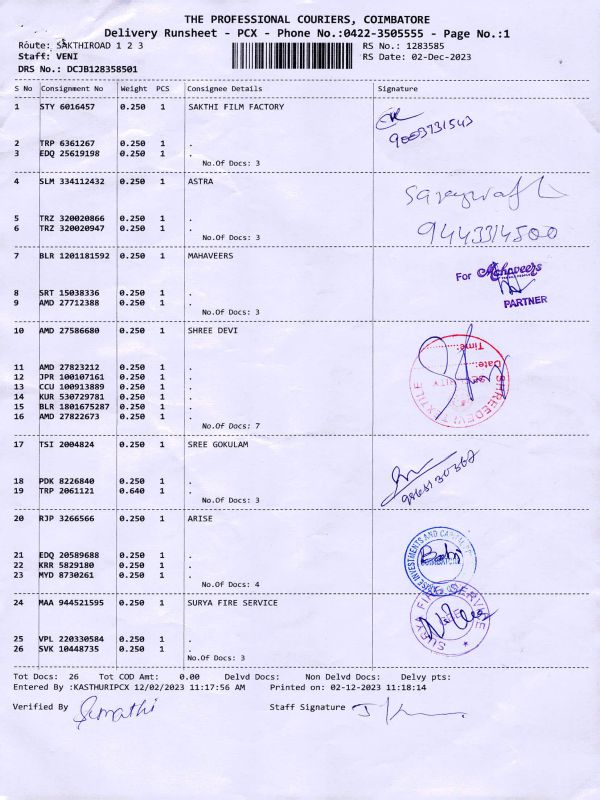 THE PROFESSIONAL COURIERS, COIMBATORE
Delivery Runsheet - PCX - Phone No.:0422-3505555 - Page No.:1
Route: SAKTHIROAD 1 2 3 RS No.: 1283585
Staff: VENI RS Date: 02-Dec-2023
DRS No.: DCJB128358501
S No Consignment No Weight PCS Consignee Details Signature
1 STY 6016457 0.250 1 SAKTHI FILM FACTORY
9003731543
2 TRP 6361267 0.250 1 .
3 EDQ 25619198 0.250 1 .
No.Of Docs: 3
4 SLM 334112432 0.250 1 ASTRA
5 TRZ 320020866 0.250 1 .
6 TRZ 320020947 0.250 1 .
9443314500
No.Of Docs: 3
7 BLR 1201181592 0.250 1 MAHAVEERS
For Mahaveers
8 SRT 15038336 0.250 1 .
9 AMD 27712388 0.250 1 .
PARTNER
No.Of Docs: 3
10 AMD 27586680 0.250 1 SHREE DEVI
Time:
Date:
SHREEDEVI TEXTILE
11 AMD 27823212 0.250 1 .
12 JPR 100107161 0.250 1 .
13 CCU 100913889 0.250 1 .
14 KUR 530729781 0.250 1 .
15 BLR 1801675287 0.250 1 .
16 AMD 27822673 0.250 1 .
No.Of Docs: 7
17 TSI 2004824 0.250 1 SREE GOKULAM
18 PDK 8226840 0.250 1 .
19 TRP 2061121 0.640 1 .
No.Of Docs: 3
20 RJP 3266566 0.250 1 ARISE
ARISE INVESTMENTS AND CAPITAL
21 EDQ 20589688 0.250 1 .
22 KRR 5829180 0.250 1 .
23 MYD 8730261 0.250 1 .
No.Of Docs: 4
24 MAA 944521595 0.250 1 SURYA FIRE SERVICE
SURYA FIRE SERVICE
25 VPL 220330584 0.250 1 .
26 SVK 10448735 0.250 1 .
No.Of Docs: 3
Tot Docs: 26 Tot COD Amt: 0.00 Delvd Docs: Non Delvd Docs: Delvy pts:
Entered By :KASTHURIPCX 12/02/2023 11:17:56 AM Printed on: 02-12-2023 11:18:14
Verified By Staff Signature